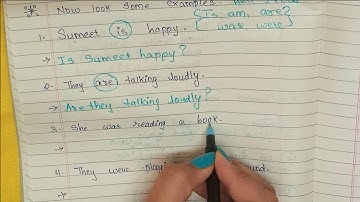 Now look some examples.
{Is, am, are?
was, were}
1. Sumeet is happy.
→ Is Sumeet happy?
2. They are talking loudly.
→ Are they talking loudly?
3. She was reading a book.
→
4. They were
→